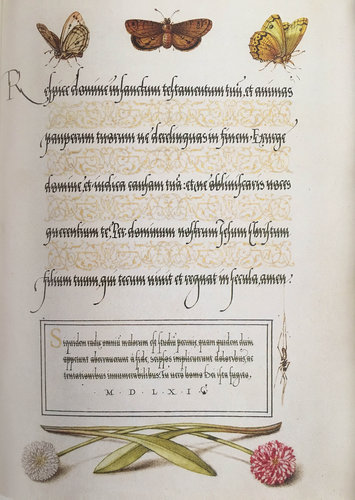 Respice domine in sanctum testamentum tuū. et animas
pauperum tuorum ne derelinquas in finem. Exurge
domine, et iudica causam tuā: et ne obliuiscaris uoces
querentium te. Per dominum nostrum Jesum Christum
filium tuum, qui tecum uiuit et regnat in secula, amen.
Siquidem radix omniū malorum est studiū pecuniæ, quam quidam dum
appetiunt aberrauerunt à fide, seipsos implicuerunt doloribus, ac
tentationibus innumerabilibus. Tu uero homo Dei ista fugito.
M D L X I